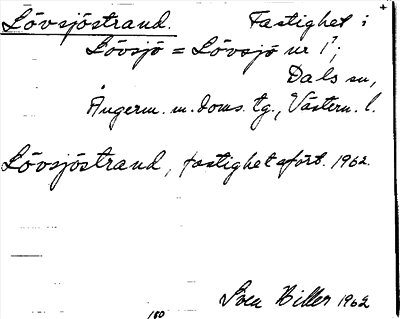 Lövsjöstrand. Fastighet i
Lövsjö = Lövsjö nr 1⁷;
Dals sn,
Ångerm. m. doms. tg., Västern. l.
Lövsjöstrand, fastighetsfört. 1962.
Sven Biller 1962
180